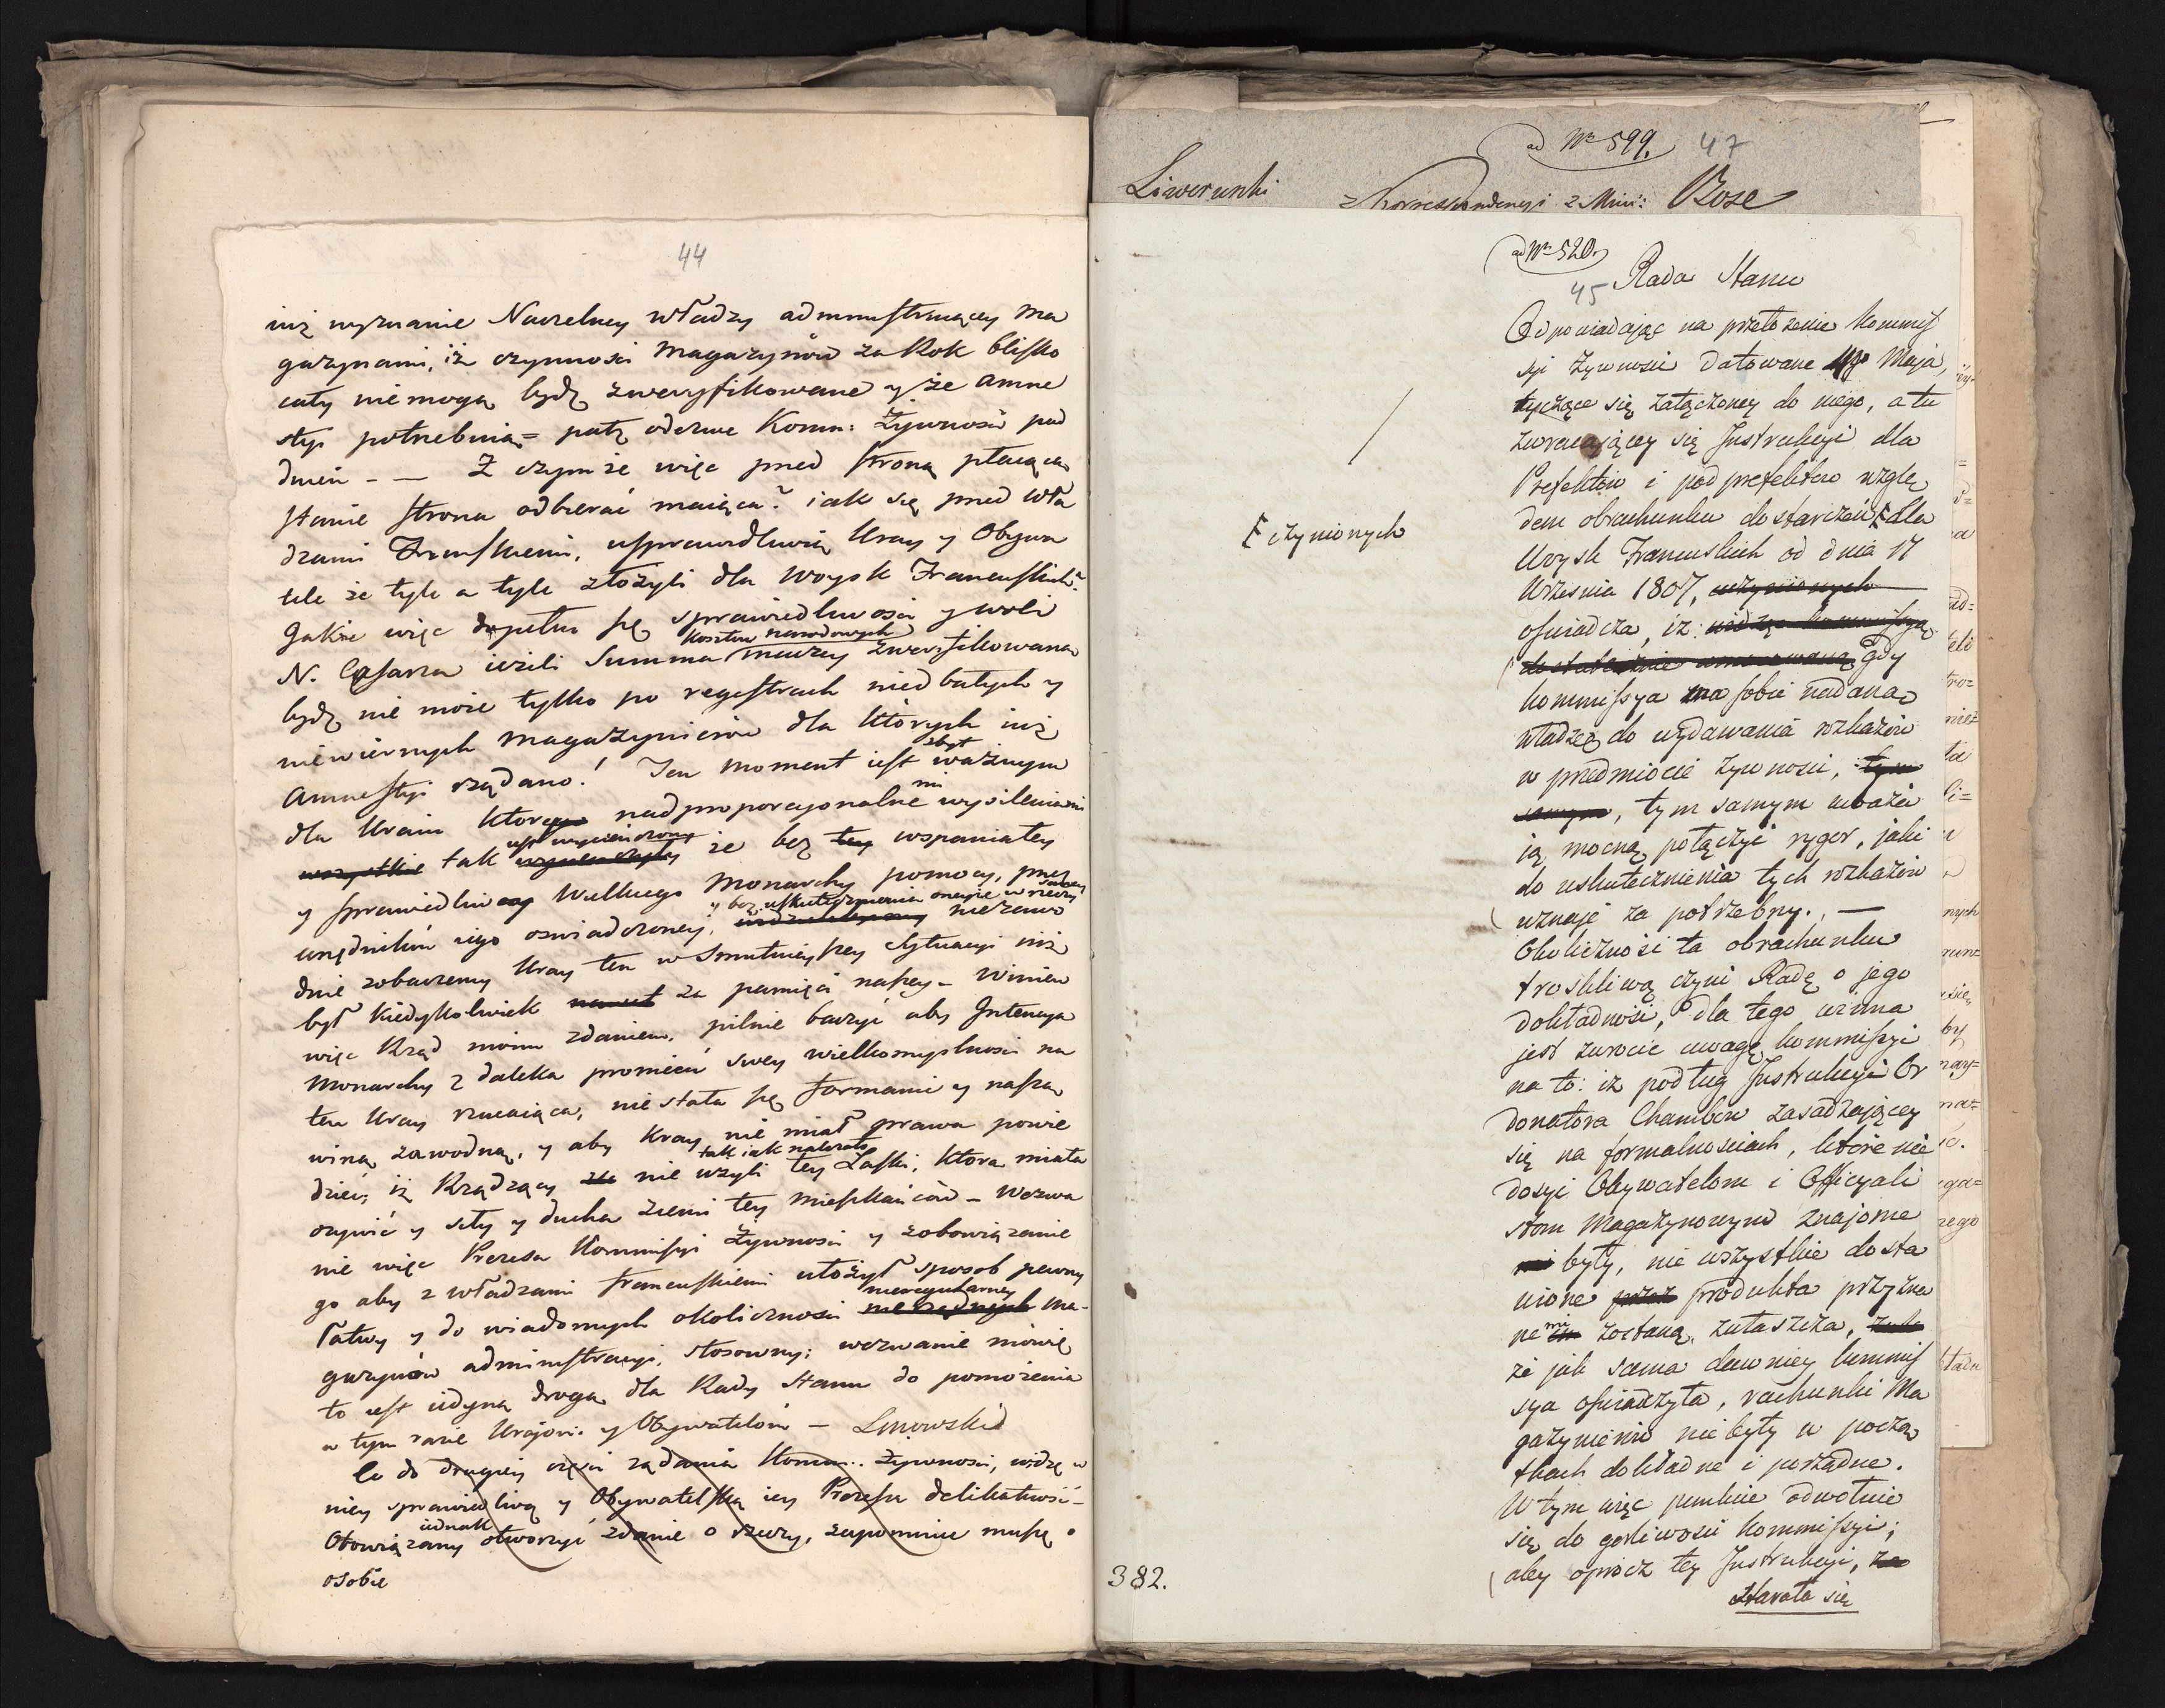 44
iuż wyznanie Naczelney władzy administruiącey Ma
gazynami, iż czynności Magazynów za Rok blisko
cały niemogą bydź zweryfikowane y że Amne
styi potrzebuią = patrz odezwe Komm: Żywności pod
dniem - — Z czymże więc przed stroną płacącą
stanie strona odbierać maiąca? iak się przed wła
dzami Francuskiemi, usprawiedliwią Kray y Obywa
tele że tyle a tyle złożyli dla Woysk Francuskich?
Jakże więc dopełni się sprawiedliwości y woli
kosztów narodowych
N. Cesarza ieżeli Summa zweryfikowana
bydź nie może tylko po regestrach niedbałych y
niewiernych Magazynierów dla których iuż
Amnestyi żądano! Ten moment iest zbyt ważnym
dla Kraiu który nadproporcyonalnemi wysileniami
wszystkie tak iest wycieńczony że bez tey wspaniałey
y sprawiedliwey Wielkiego Monarchy pomocy, przez
y bez uskutecznienia oneyże w rzeczy samey
urzędników iego oświadczoney, niezawo
dnie zobaczemy Kray ten w smutnieyszey sytuacyi niż
był kiedykolwiek nawet za pamięci naszey - Winien
więc Rząd moim zdaniem, pilnie baczyć aby Intencya
Monarchy z daleka promień swey wielkomyślności na
ten Kray rzucaiąca, nie stała się formami y naszą
winą zawodną, y aby Kray nie miał prawa powie
dzieć, iż Rządzący nie użyli tak iak należało tey Łaski, która miała
ożywić y siły y ducha ziemi tey mieszkańców - Wezwa
nie więc Prezesa Kommissyi Żywności y zobowiązanie
go aby z władzami francuskiemi ułożył sposób pewny
łatwy y do wiadomych okoliczności nieregularney ma-
gazynów administracyi, stosowny; wezwanie mówię
to iest iedyną drogą dla Rady Stanu do pomożenia
w tym razie Krajowi y Obywatelów — Linowski
Co do drugiey części żądania Komm.. Żywności, widzę w
niey sprawiedliwą y Obywatelską iey Prezesa delikatność -
Obowiązany iednak otworzyć zdanie o rzeczy, zapomnieć muszę o
osobie
ad Nr 599. 47
Liwerunki z Korrespondencyi z Min: Bose
ad Nr 520.
45 Rada Stanu
Odpowiadając na przełożenie Kommis
syi Żywności datowane Maja,
tyczące się załączoney do niego, a tu
zwracającey się Instrukcyi dla
Prefektów i podprefektów wzglę
dem obrachunku dostarczeń dla
czynionych
Woysk Francuskich od dnia 17
Września 1807, uczynionych
oświadcza, iż widząc Kommissyą
dostatecznie umocowaną gdy
Kommissya ma sobie nadaną
władzę do wydawania rozkazów
w przedmiocie żywności, tym
samym, tym samym uważa
ją mocną połączyć rygor, jaki
do uskutecznienia tych rozkazów
uznaje za potrzebny. , —
Okoliczność ta obrachunku
troskliwą czyni Radę o jego
dokładność, dla tego winna
jest zwrócić uwagę Kommissyi
na to: iż podług Instrukcyi Or
donatora Chambon zasadzającey
się na formalnościach, które nie
dosyć Obywatelom i Officyali
stom Magazynowym znajome
były, nie wszystkie dosta
wione przez produkta przyzna
nemi zostaną, zwłaszcza,
że jak sama dawniey Kommis
sya oświadczyła, rachunki Ma
gazynierów niebyły w począ
tkach dokładne i porządne.
W tym więc punkcie odwołuie
się do gorliwości Kommissyi;
aby oprócz tey Instrukcyi, za
starała się
382.